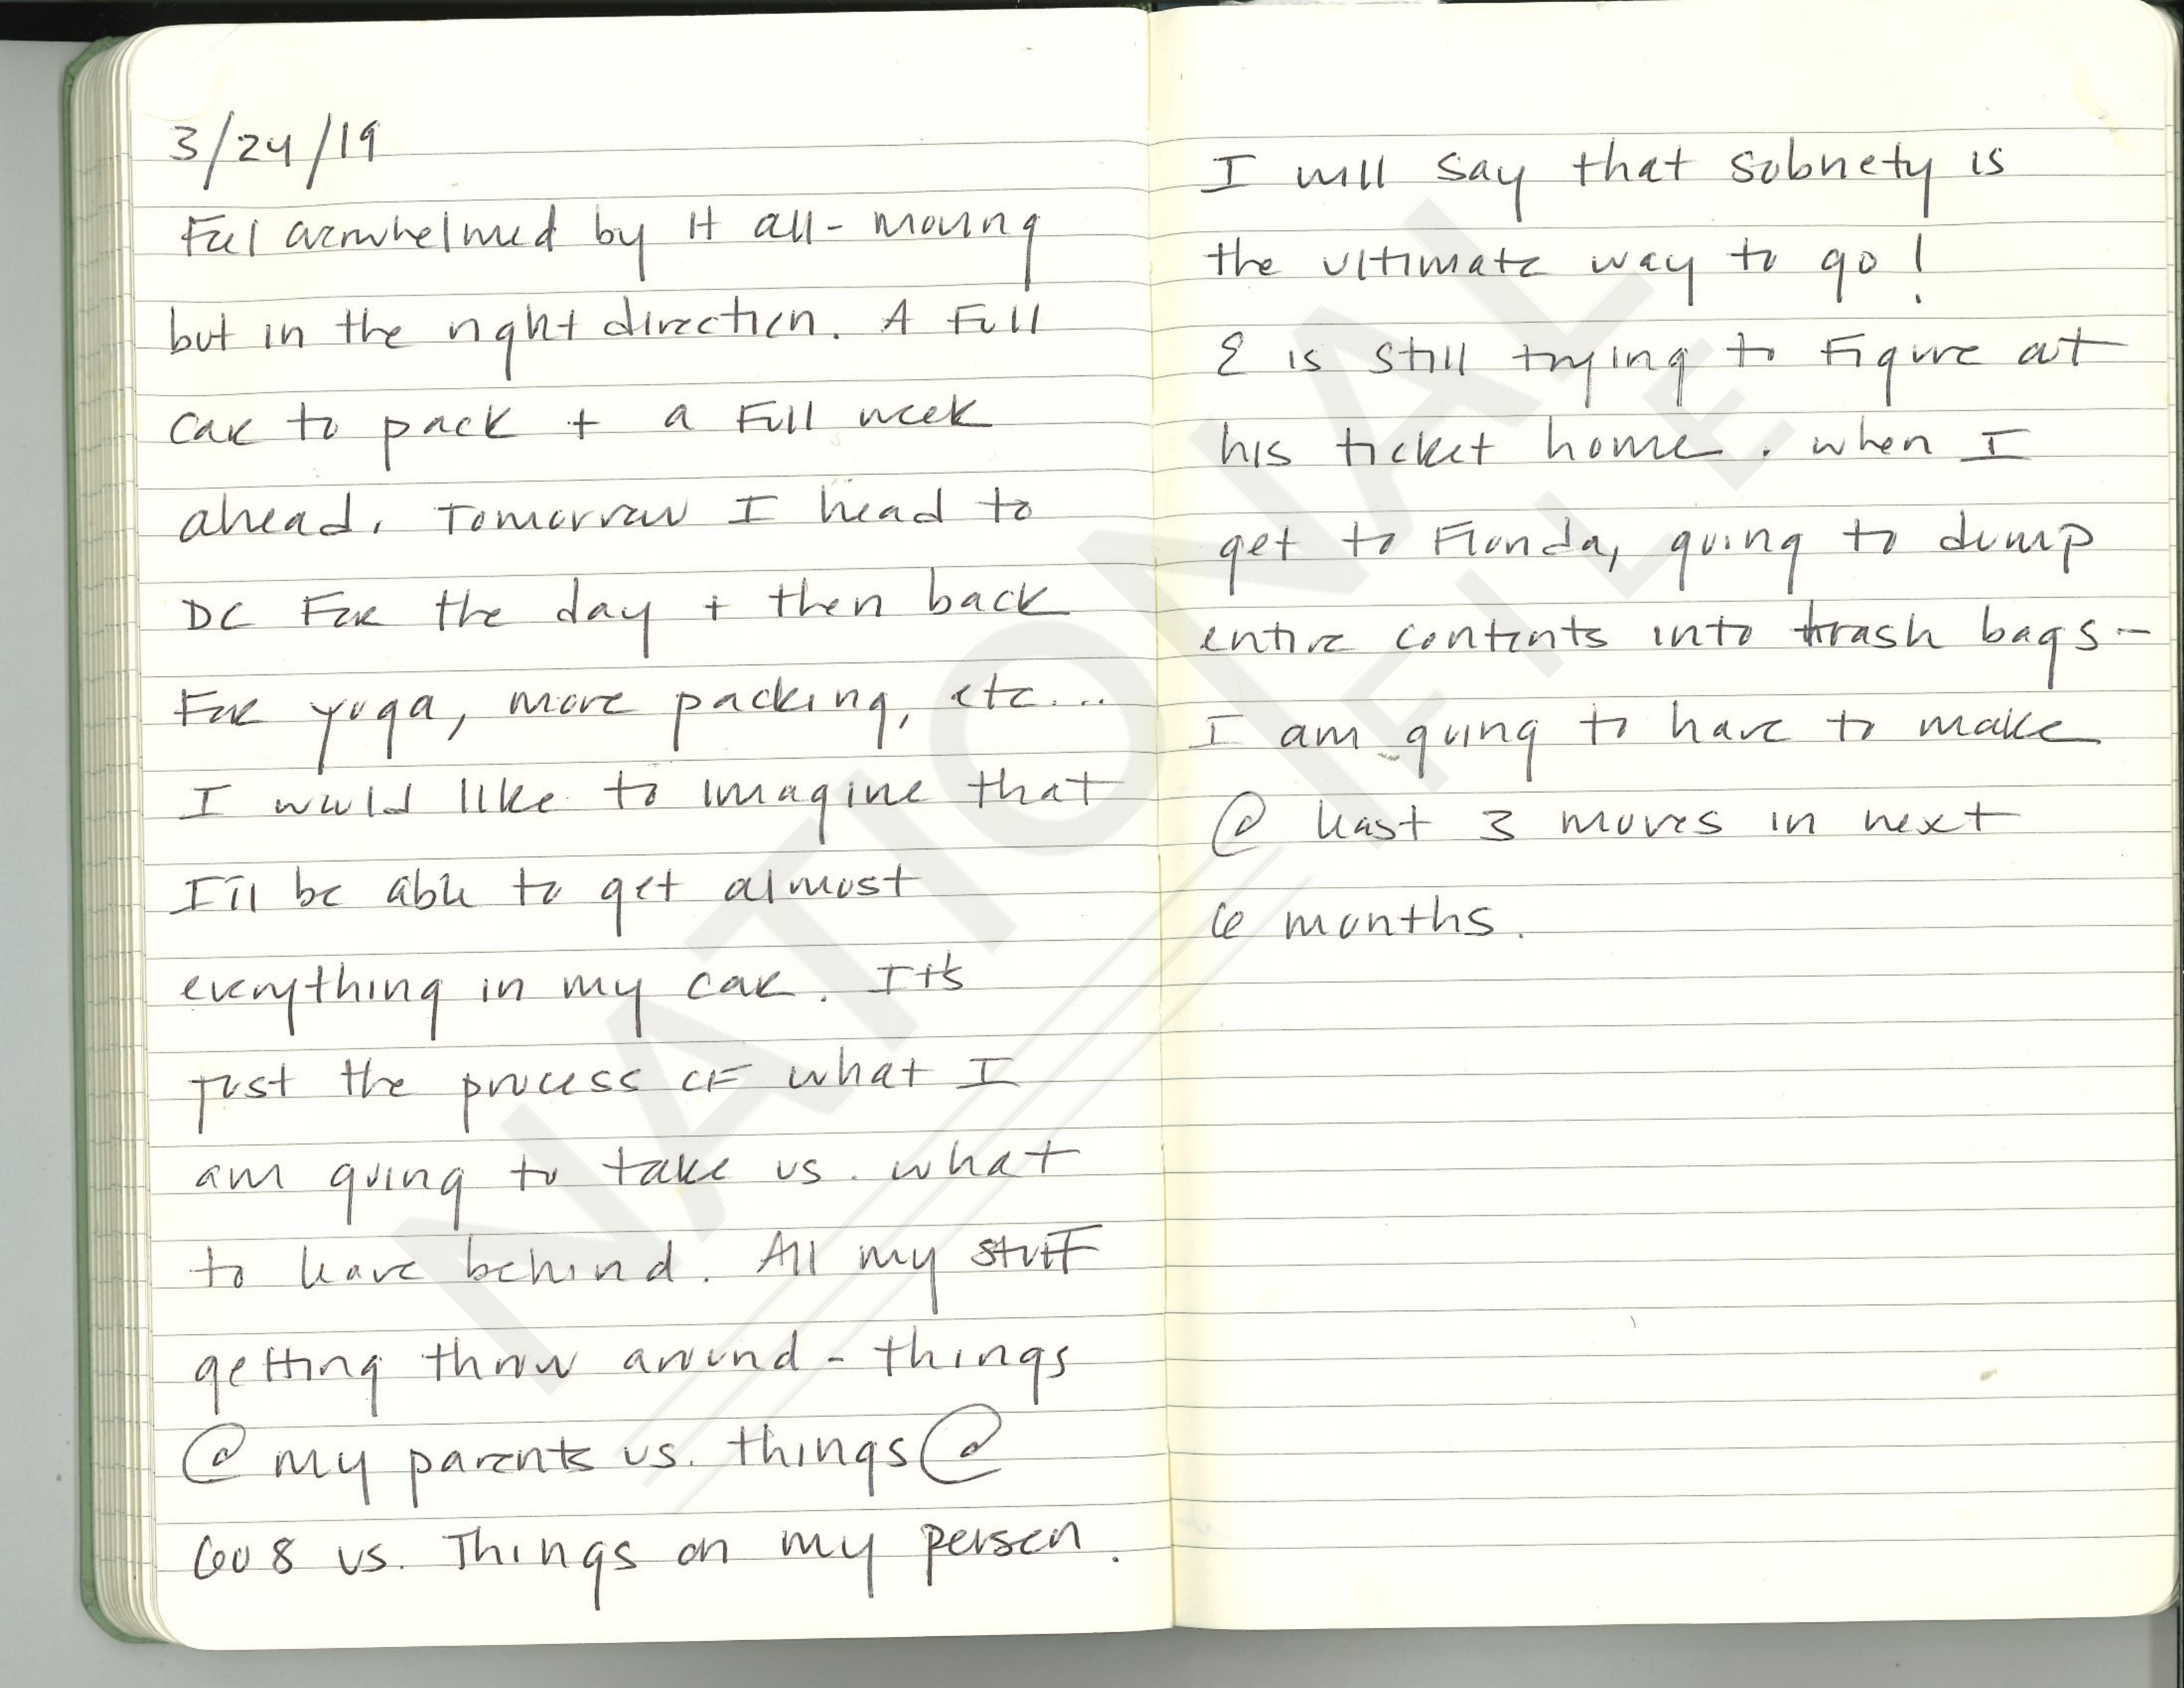 3/24/19
Feel overwhelmed by it all - moving
but in the right direction. A full
car to pack + a full week
ahead. Tomorrow I head to
DC for the day + then back
for yoga, more packing, etc....
I would like to imagine that
I'll be able to get almost
everything in my car. It's
just the process of what I
am going to take vs. what
to leave behind. All my stuff
getting throw around - things
@ my parents vs. things @
608 vs. Things on my person.
I will say that sobriety is
the ultimate way to go!
E is still trying to figure out
his ticket home. when I
get to Florida, going to dump
entire contents into trash bags -
I am going to have to make
@ least 3 moves in next
6 months.
NATIONAL
FILE